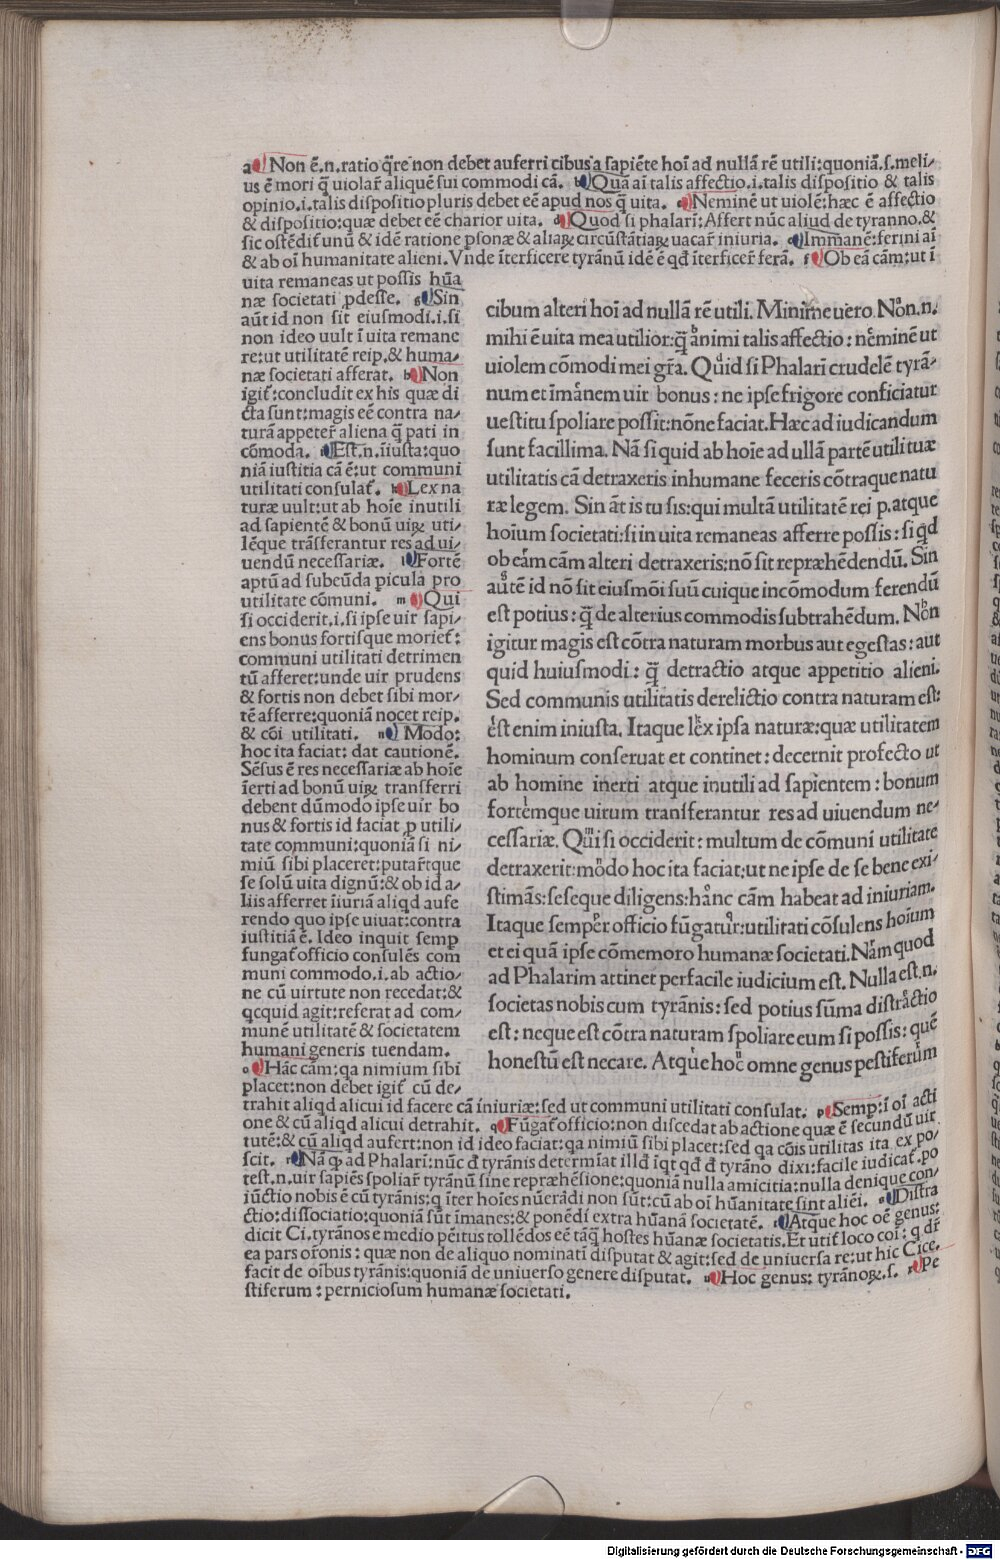 a Non ē.n.ratio q̄re non debet auferri cibus a sapiēte hoī ad nullā rē utili:quoniā.s.meli/
us ē mori q̄ uiolar̄ aliquē sui commodi cā. b Quā aī talis affectio.i.talis dispositio & talis
opinio.i.talis dispositio pluris debet eē apud nos q̄ uita. c Neminē ut uiolē:hæc ē affectio
& dispositio:quæ debet eē charior uita. d Quod si phalarī:Affert nūc aliud de tyranno.&
sic ostēdit̄ unū & idē ratione p̄sonæ & aliaꝝ circūstātiaꝝ uacar̄ iniuria. e Immanē:ferini aī
& ab oī humanitate alieni. Vnde īterficere tyrānū idē ē qđ īterficer̄ ferā. f Ob eā cām:ut ī
uita remaneas ut possis hūa
næ societati p̄desse. g Sin
aūt id non sit eiusmodi.i.si
non ideo uult ī uita remane
re:ut utilitatē reip.& huma/
næ societati afferat. h Non
igit̄:concludit ex his quæ di
cta sunt:magis eē contra na/
turā appeter̄ aliena q̄ pati in
cōmoda. i Est.n.īiusta:quo
niā iustitia cā ē:ut communi
utilitati consulat̄. k Lex na
turæ uult:ut ab hoīe inutili
ad sapientē & bonū uiꝝ uti/
lēque trāsferantur res ad ui/
uendū necessariæ. l Fortē
aptū ad subeūda picula pro
utilitate cōmuni. m Qui
si occiderit.i.si ipse uir sapi/
ens bonus fortisque moriet̄:
communi utilitati detrimen
tū afferet:unde uir prudens
& fortis non debet sibi mor/
tē afferre:quoniā nocet reip.
& cōi utilitati. n Modo:
hoc ita faciat: dat cautionē.
Sēsus ē res necessariæ ab hoīe
īerti ad bonū uiꝝ transferri
debent dūmodo ipse uir bo
nus & fortis id faciat p utili/
tate communi:quoniā si ni/
miū sibi placeret:putar̄tque
se solū uita dignū:& ob id a/
liis afferret īiuriā aliqd aufe
rendo quo ipse uiuat:contra
iustitiā ē. Ideo inquit semp
fungat̄ officio consulēs com
muni commodo.i.ab actio/
ne cū uirtute non recedat:&
qcquid agit:referat ad com/
munē utilitatē & societatem
humani generis tuendam.
o Hāc cām:qa nimium sibi
placet:non debet igit̄ cū de/
cibum alteri hoī ad nullā rē utili. Minime uero. Non.n.
mihi ē uita mea utilior:q̄ animi talis affectio: nēminē ut
uiolem cōmodi mei gr̄a. Quid si Phalari crudelē tyrā/
num et imānem uir bonus: ne ipse frigore conficiatur
uestitu spoliare possit:nōne faciat. Hæc ad iudicandum
sunt facillima. Nā si quid ab hoīe ad ullā partē utili tuæ
utilitatis cā detraxeris inhumane feceris cōtraque natu
ræ legem. Sin āt is tu sis:qui multā utilitatē rei p.atque
hoīum societati:si in uita remaneas afferre possis: si qd
ob eam cām alteri detraxeris:nō sit repræhēdendū. Sin
autē id nō sit eiusmōi suū cuique incōmodum ferendū
est potius: q̄ de alterius commodis subtrahēdum. Non
igitur magis est cōtra naturam morbus aut egestas: aut
quid huiusmodi: q̄ detractio atque appetitio alieni.
Sed communis utilitatis derelictio contra naturam est:
est enim iniusta. Itaque lex ipsa naturæ:quæ utilitatem
hominum conseruat et continet: decernit profecto ut
ab homine inerti atque inutili ad sapientem: bonum
fortemque uirum transferantur res ad uiuendum ne/
cessariæ. Qui si occiderit: multum de cōmuni utilitate
detraxerit:modo hoc ita faciat:ut ne ipse de se bene exi/
stimās:seseque diligens:hanc cām habeat ad iniuriam.
Itaque semper officio fūgatur:utilitati cōsulens hoīum
et ei quā ipse cōmemoro humanæ societati. Nam quod
ad Phalarim attinet perfacile iudicium est. Nulla est.n.
societas nobis cum tyrānis: sed potius sūma distractio
est: neque est cōtra naturam spoliare eum si possis: quē
honestū est necare. Atque hoc omne genus pestiferum
trahit aliqd alicui id facere cā iniuriæ:sed ut communi utilitati consulat. p Semp:ī oī acti
one & cū aliqd alicui detrahit. q Fūgat̄ officio:non discedat ab actione quæ ē secundū uir
tutē:& cū aliqd aufert:non id ideo faciat:qa nimiū sibi placet:sed qa cōis utilitas ita ex po/
scit. r Nā q ad Phalarī:nūc đ tyrānis determīat illđ īqt qđ đ tyrāno dixi:facile iudicat̄.po
test.n.uir sapiēs spoliar̄ tyrānū sine repræhēsione:quoniā nulla amicitia:nulla denique con/
iūctio nobis ē cū tyrānis:q īter hoīes nūerādi non sūt:cū ab oī hūanitate sint aliēi. s Distra
ctio:dissociatio:quoniā sūt īmanes:& ponēdi extra hūanā societatē. t Atque hoc oē genus:
dicit Ci.tyrānos e medio pēitus tollēdos eē tāq hostes hūanæ societatis. Et utit̄ loco coī: q dr̄
ea pars oronis: quæ non de aliquo nominatī disputat & agit:sed de uniuersa re:ut hic Cice.
facit de oībus tyrānis:quoniā de uniuerso genere disputat. u Hoc genus: tyrānoꝝ.s. x Pe
stiferum: perniciosum humanæ societati.
Digitalisierung gefördert durch die Deutsche Forschungsgemeinschaft - DFG